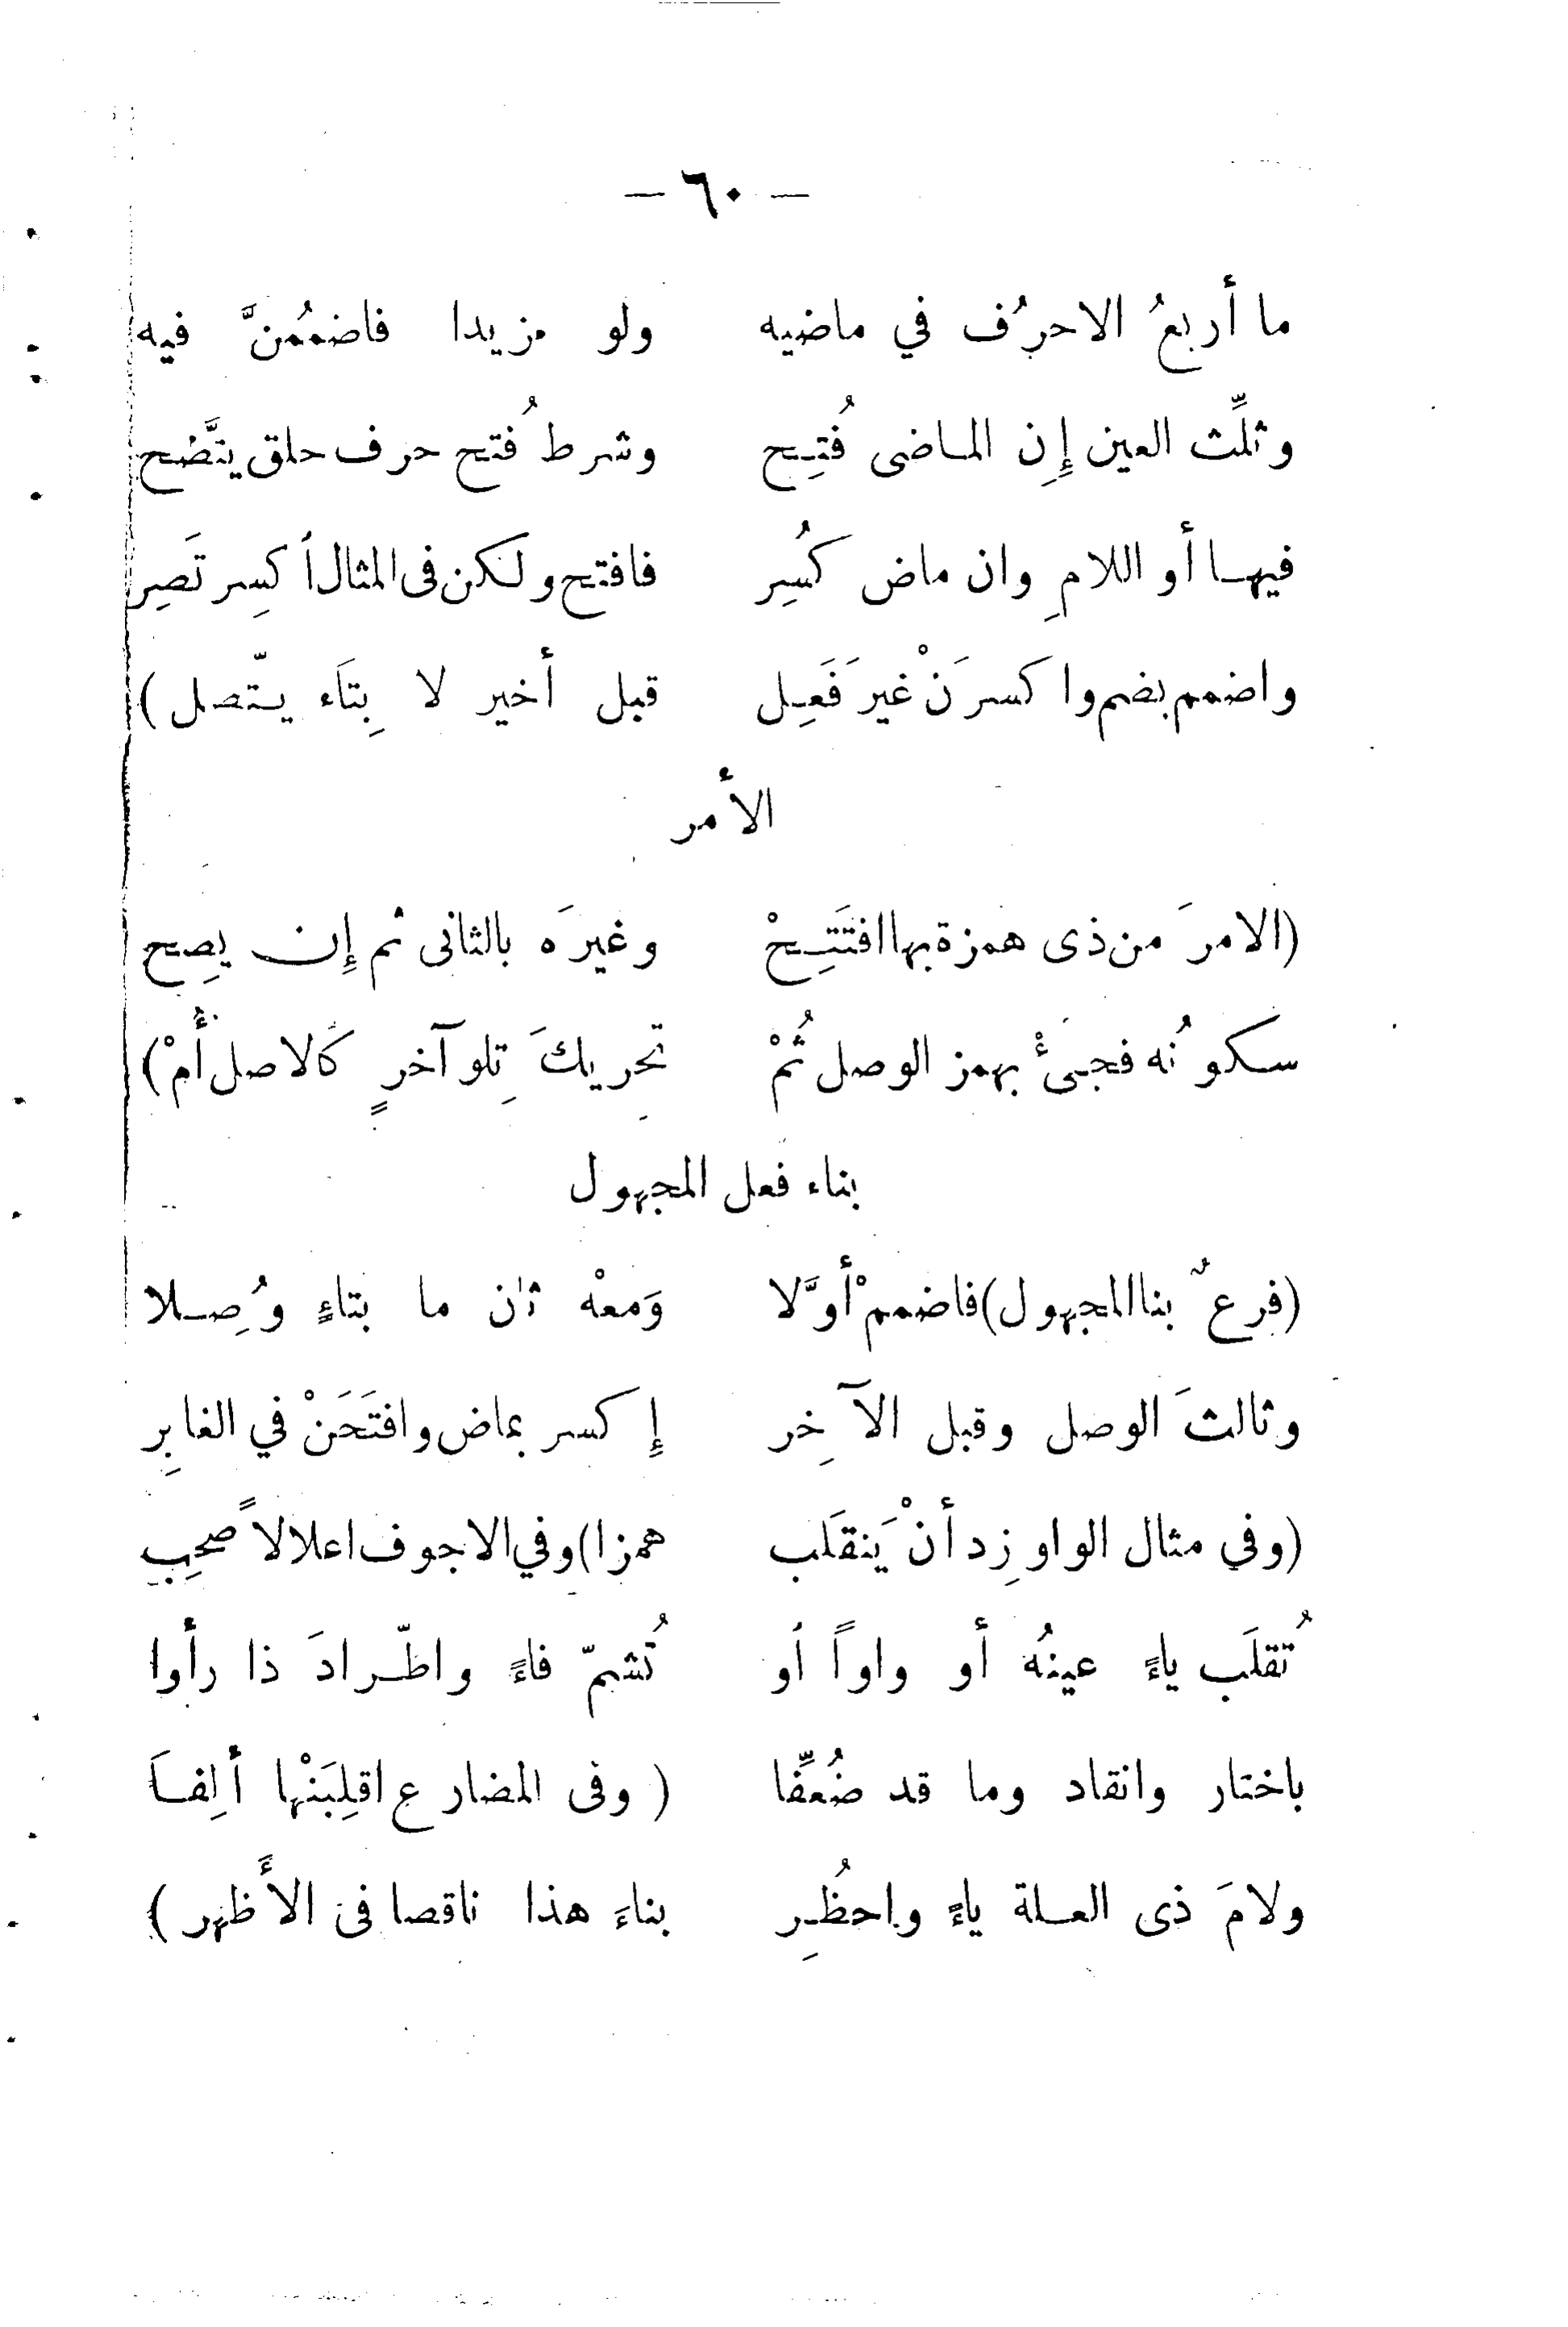 — ٦٠ —
ما أربعُ الاحرُف في ماضيه ولو مزيدا فاضمُمنَّ فيه
وثلِّث العين إِن الماضى فُتِح وشرط فُتح حرف حلق يتَّضح
فيها أو اللامِ وان ماض كُسِر فافتح ولكن فى المثال اُكسِر تَصِر
واضمم بضم وا كسرَنْ غيرَ فَعِل قبل أخير لا بِتاَء يتّصل)
الأمر
(الامرَ من ذى همزة بها افتَتِحْ وغيرَه بالثانى ثم إِن يصِح
سكونُه فجىَْٔ بهمز الوصل ثُمْ تحرِيكَ تِلو آخرٍ كالاصل أُمْ)
بناء فعل المجهول
(فرعٌ بنا المجهول) فاضممْ أوَّلا وَمعْه ثان ما بتاءٍ وُصِلا
وثالثَ الوصل وقبل الآخِر إكسر بماض وافتَحَنْ في الغابِر
(وفي مثال الواو زِد أنْ يَنقلَب همزا) وفي الاجوف اعلالاً صحِب
تُقلَب ياءً عينُه أو واواً اَو تُشمّ فاءً واطّرادَ ذا رأوا
باختار وانقاد وما قد ضُعِّفا (وفى المضارع اقلِبَنْها ألِفاَ
ولامَ ذى العلة ياءً واحظُرِ بناءَ هذا ناقصا فى الأَظهر)